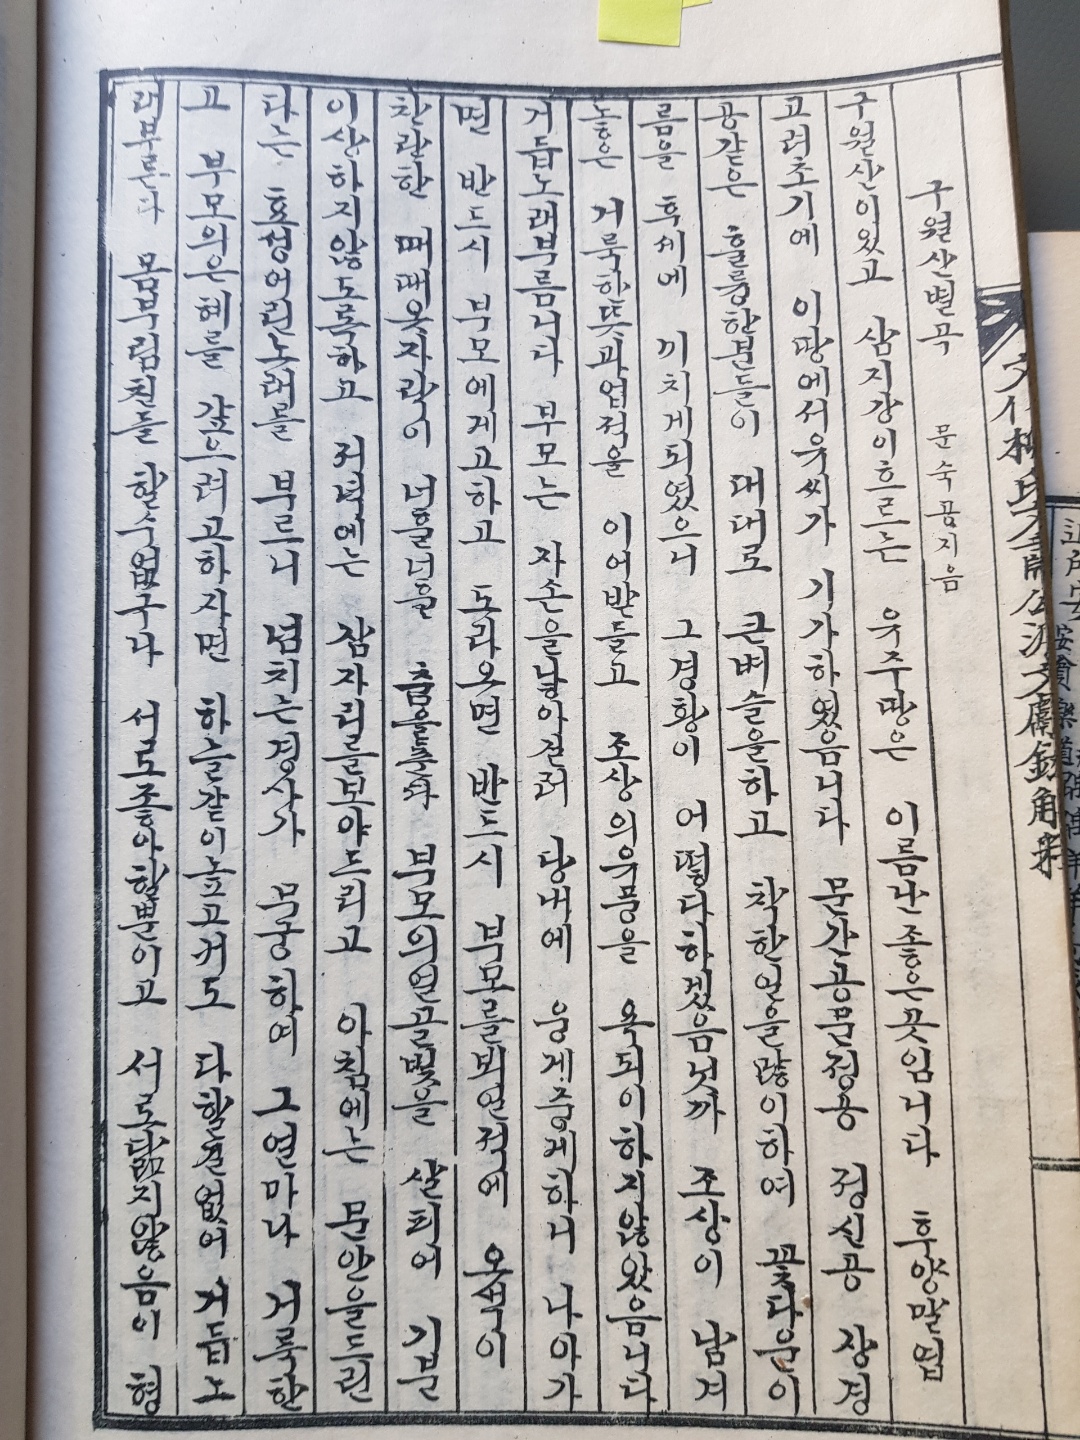 구월산별곡 문숙공지음
구월산이있고 삼지강이흐르는 유주땅은 이름난좋은곳임니다 후양말엽
고려초기에 이땅에서유씨가 기가하였음니다 문간공문정공 정신공 장경
공같은 훌륭한분들이 대대로 큰벼슬을하고 착한일을많이하여 꽃다운이
름을 후세에 끼치게되였으니 그경황이 어떻다하겠음닛까 조상이 남겨
놓은 거룩한뜻과업적을 이어받들고 조상의유풍을 욕되이하지않았음니다
거듭노래부름니다 부모는 자손을낳아길러 당내에 웅게중게하니 나아가
면 반드시 부모에게고하고 도라오면 반드시 부모를뵈인적에 오색이
찬란한 때때옷자락이 너흘너흘 춤을추나 부모의얼골빛을 살피어 기분
이상하지않도록하고 저녁에는 잠자리를보아드리고 아침에는 문안을드린
다는 효성어린노래를 부르니 넘치는경사가 무궁하여 그얼마나 거룩한
고 부모의은혜를 갚으려고하자면 하늘같이높고커도 다할길없어 거듭노
래부른다 몸부림친들 할수없구나 서도좋아할뿐이고 서로닮지않음이 형